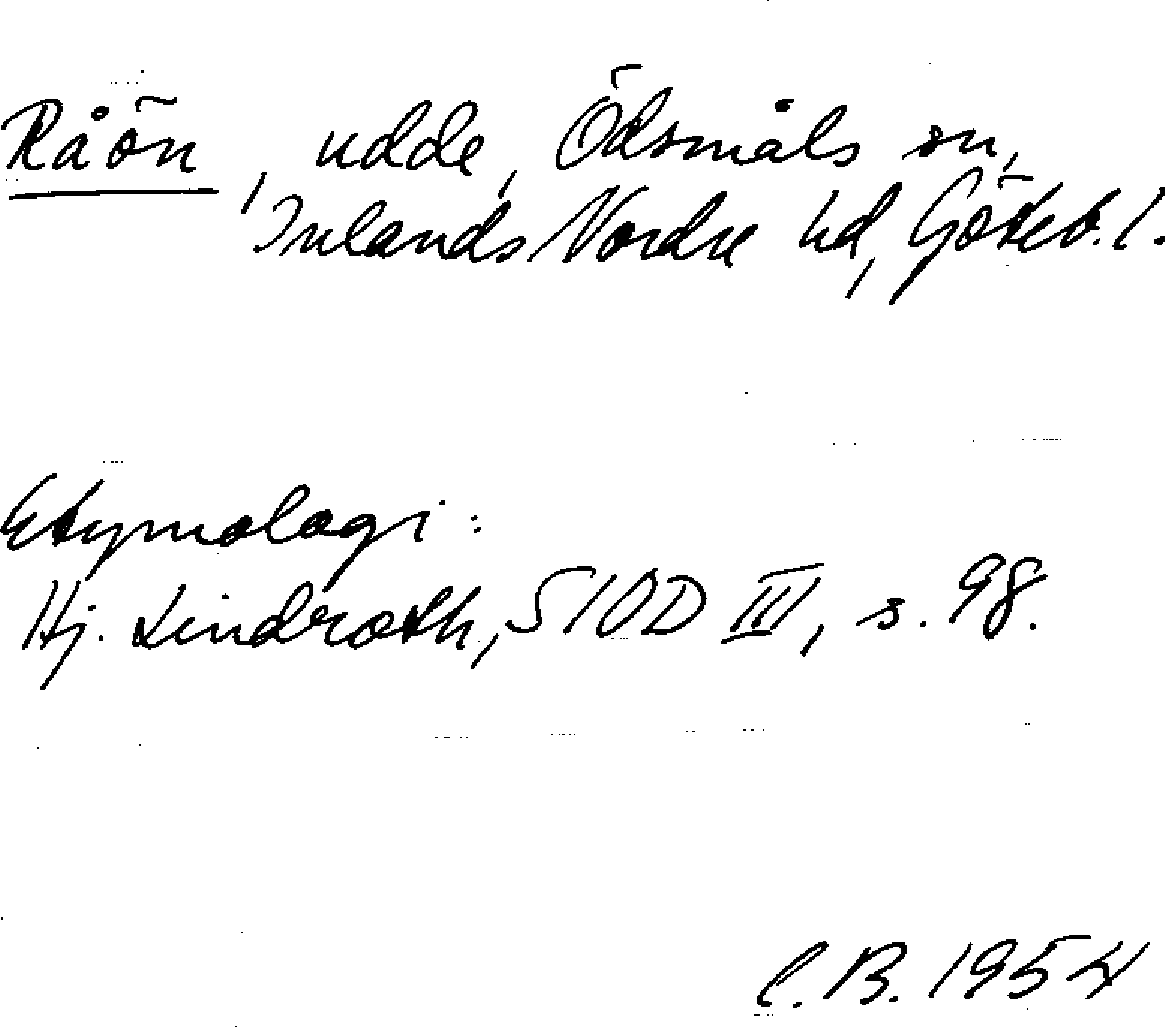 Råön, udde, Ödsmåls sn,
Inlands Nordre hd, Göteb. l.
Etymologi:
Hj. Lindroth, SIOD III, s. 98.
C.B. 1954